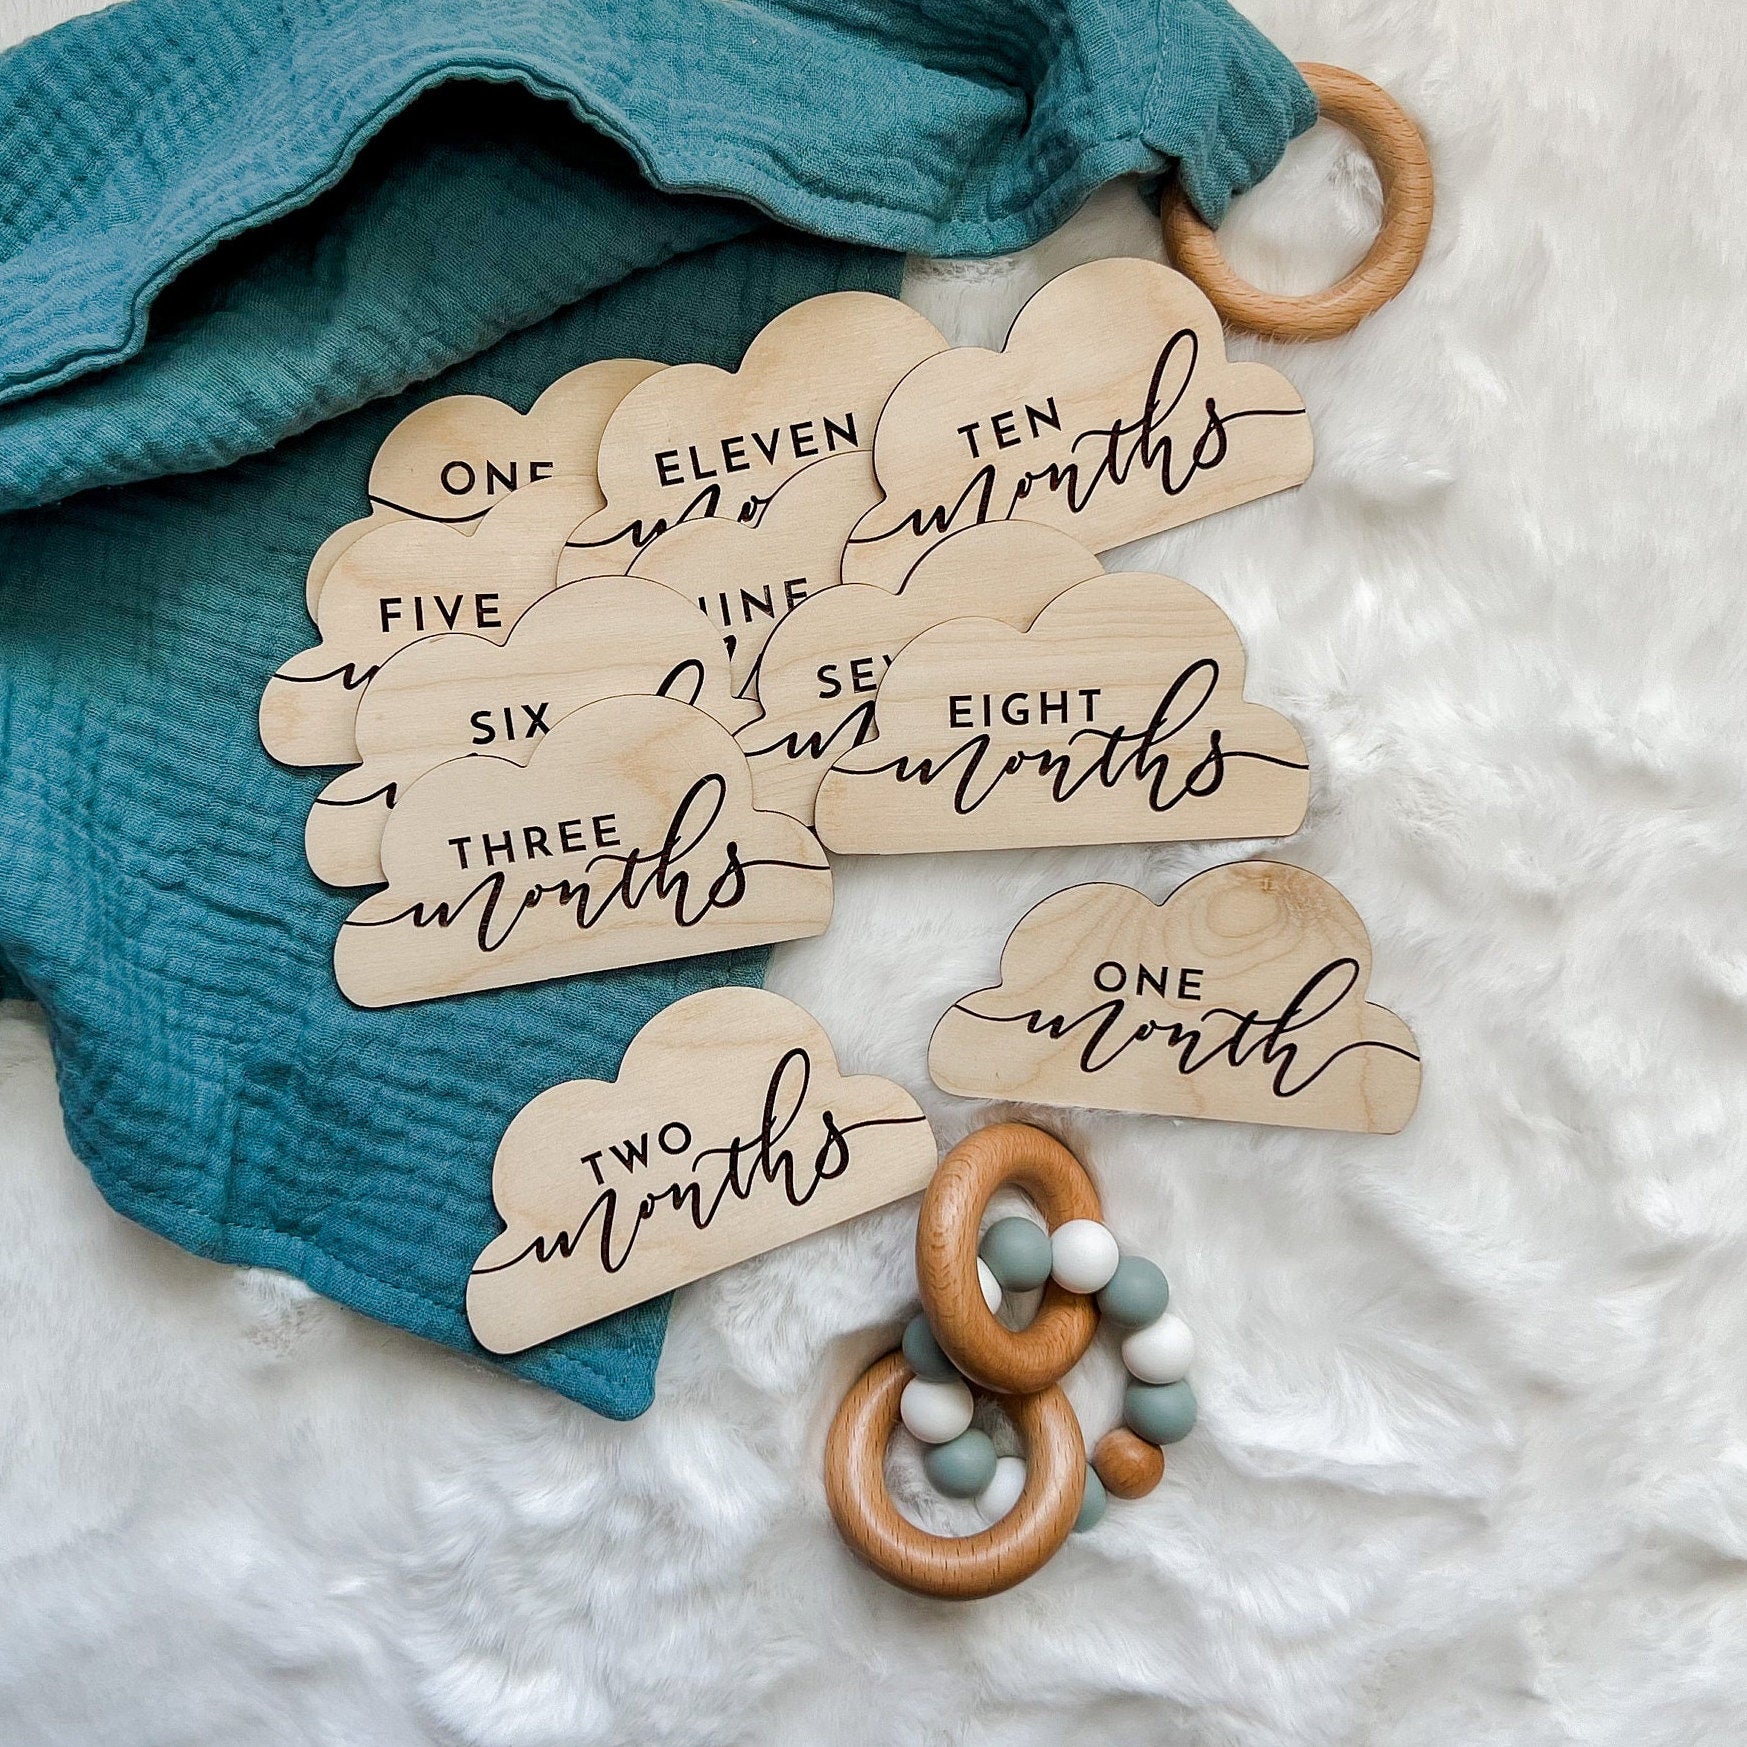 ONE
ELEVEN
TEN
months
FIVE
SIX
EIGHT
months
THREE
months
ONE
month
TWO
months